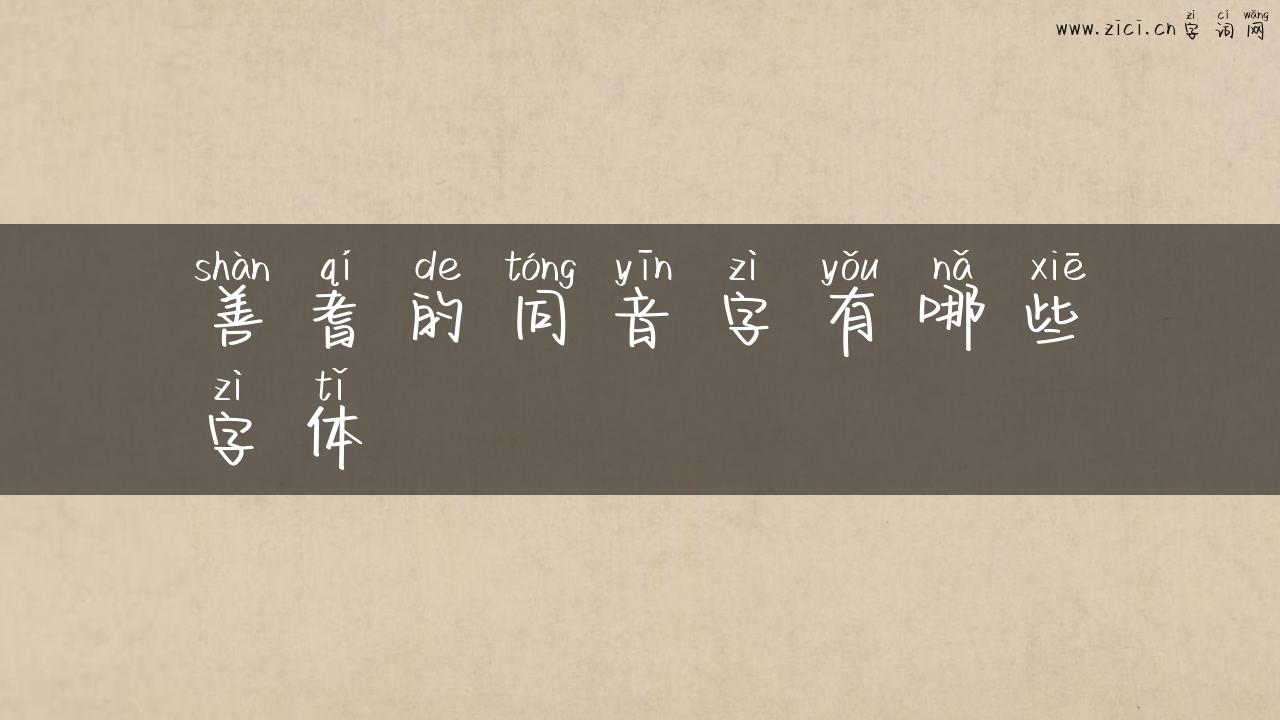 zì cí wǎng
www.zici.cn 字词网
shàn qí de tóng yīn zì yǒu nǎ xiē
善耆的同音字有哪些
zì tǐ
字体